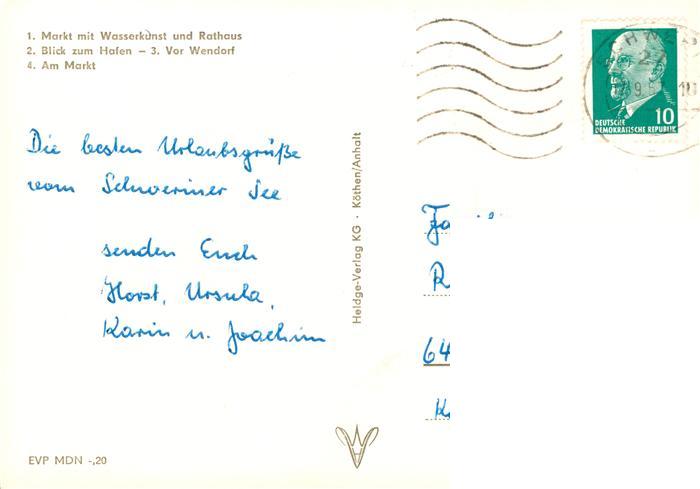 1. Markt mit Wasserkunst und Rathaus
2. Blick zum Hafen – 3. Vor Wendorf
4. Am Markt
Die besten Urlaubsgrüße
vom Schweriner See
senden Euch
Horst, Ursula,
Karin u. Joachim
EVP MDN -,20
Heldge-Verlag KG · Köthen/Anhalt
10
DEUTSCHE
DEMOKRATISCHE REPUBLIK
64